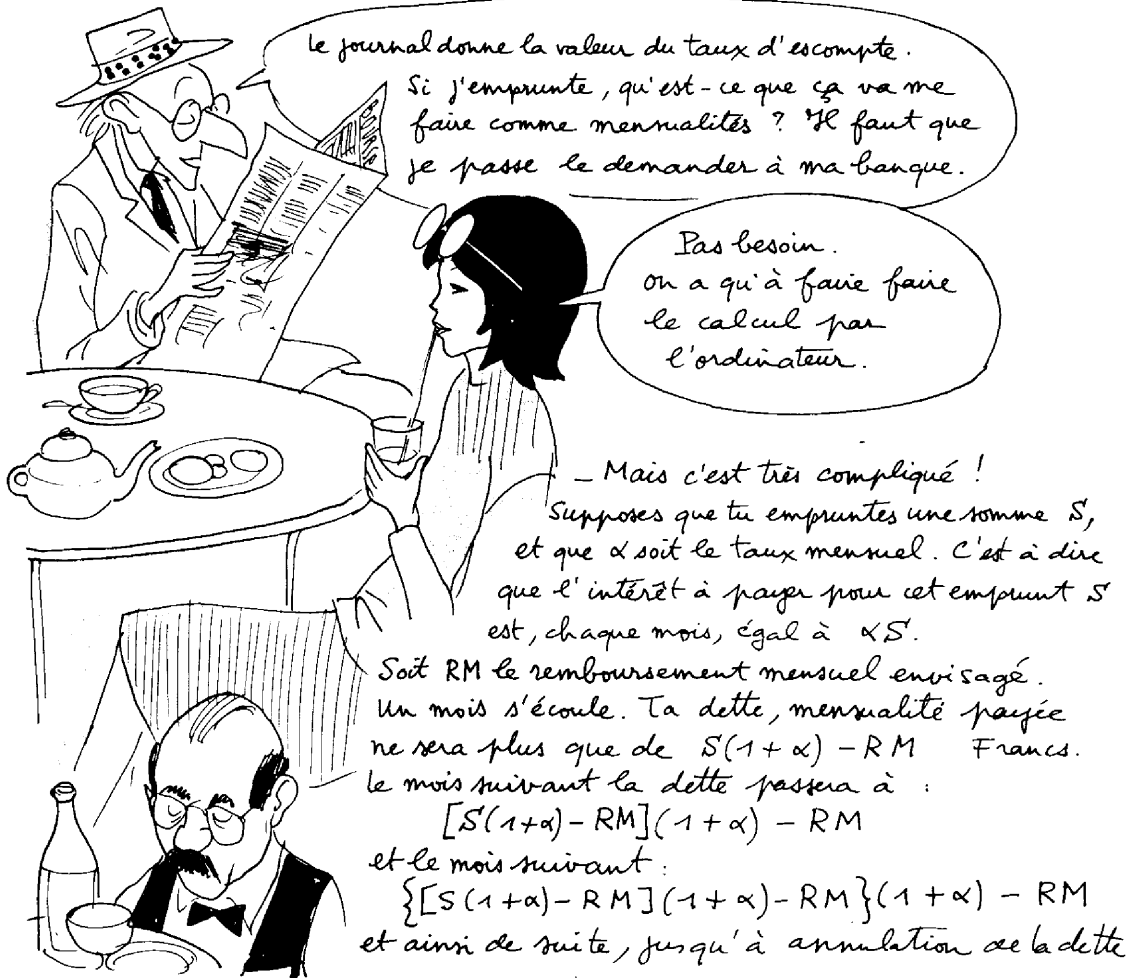 Le journal donne la valeur du taux d'escompte.
Si j'emprunte, qu'est-ce que ça va me
faire comme mensualités ? Il faut que
je passe le demander à ma banque.
Pas besoin.
on a qu'à faire faire
le calcul par
l'ordinateur.
_ Mais c'est très compliqué !
Supposes que tu empruntes une somme S,
et que α soit le taux mensuel. C'est à dire
que l'intérêt à payer pour cet emprunt S
est, chaque mois, égal à αS.
Soit RM le remboursement mensuel envisagé.
Un mois s'écoule. Ta dette, mensualité payée
ne sera plus que de S(1+α) - RM Francs.
le mois suivant la dette passera à :
[S(1+α) - RM](1+α) - RM
et le mois suivant :
{[S(1+α) - RM](1+α) - RM}(1+α) - RM
et ainsi de suite, jusqu'à annulation de la dette